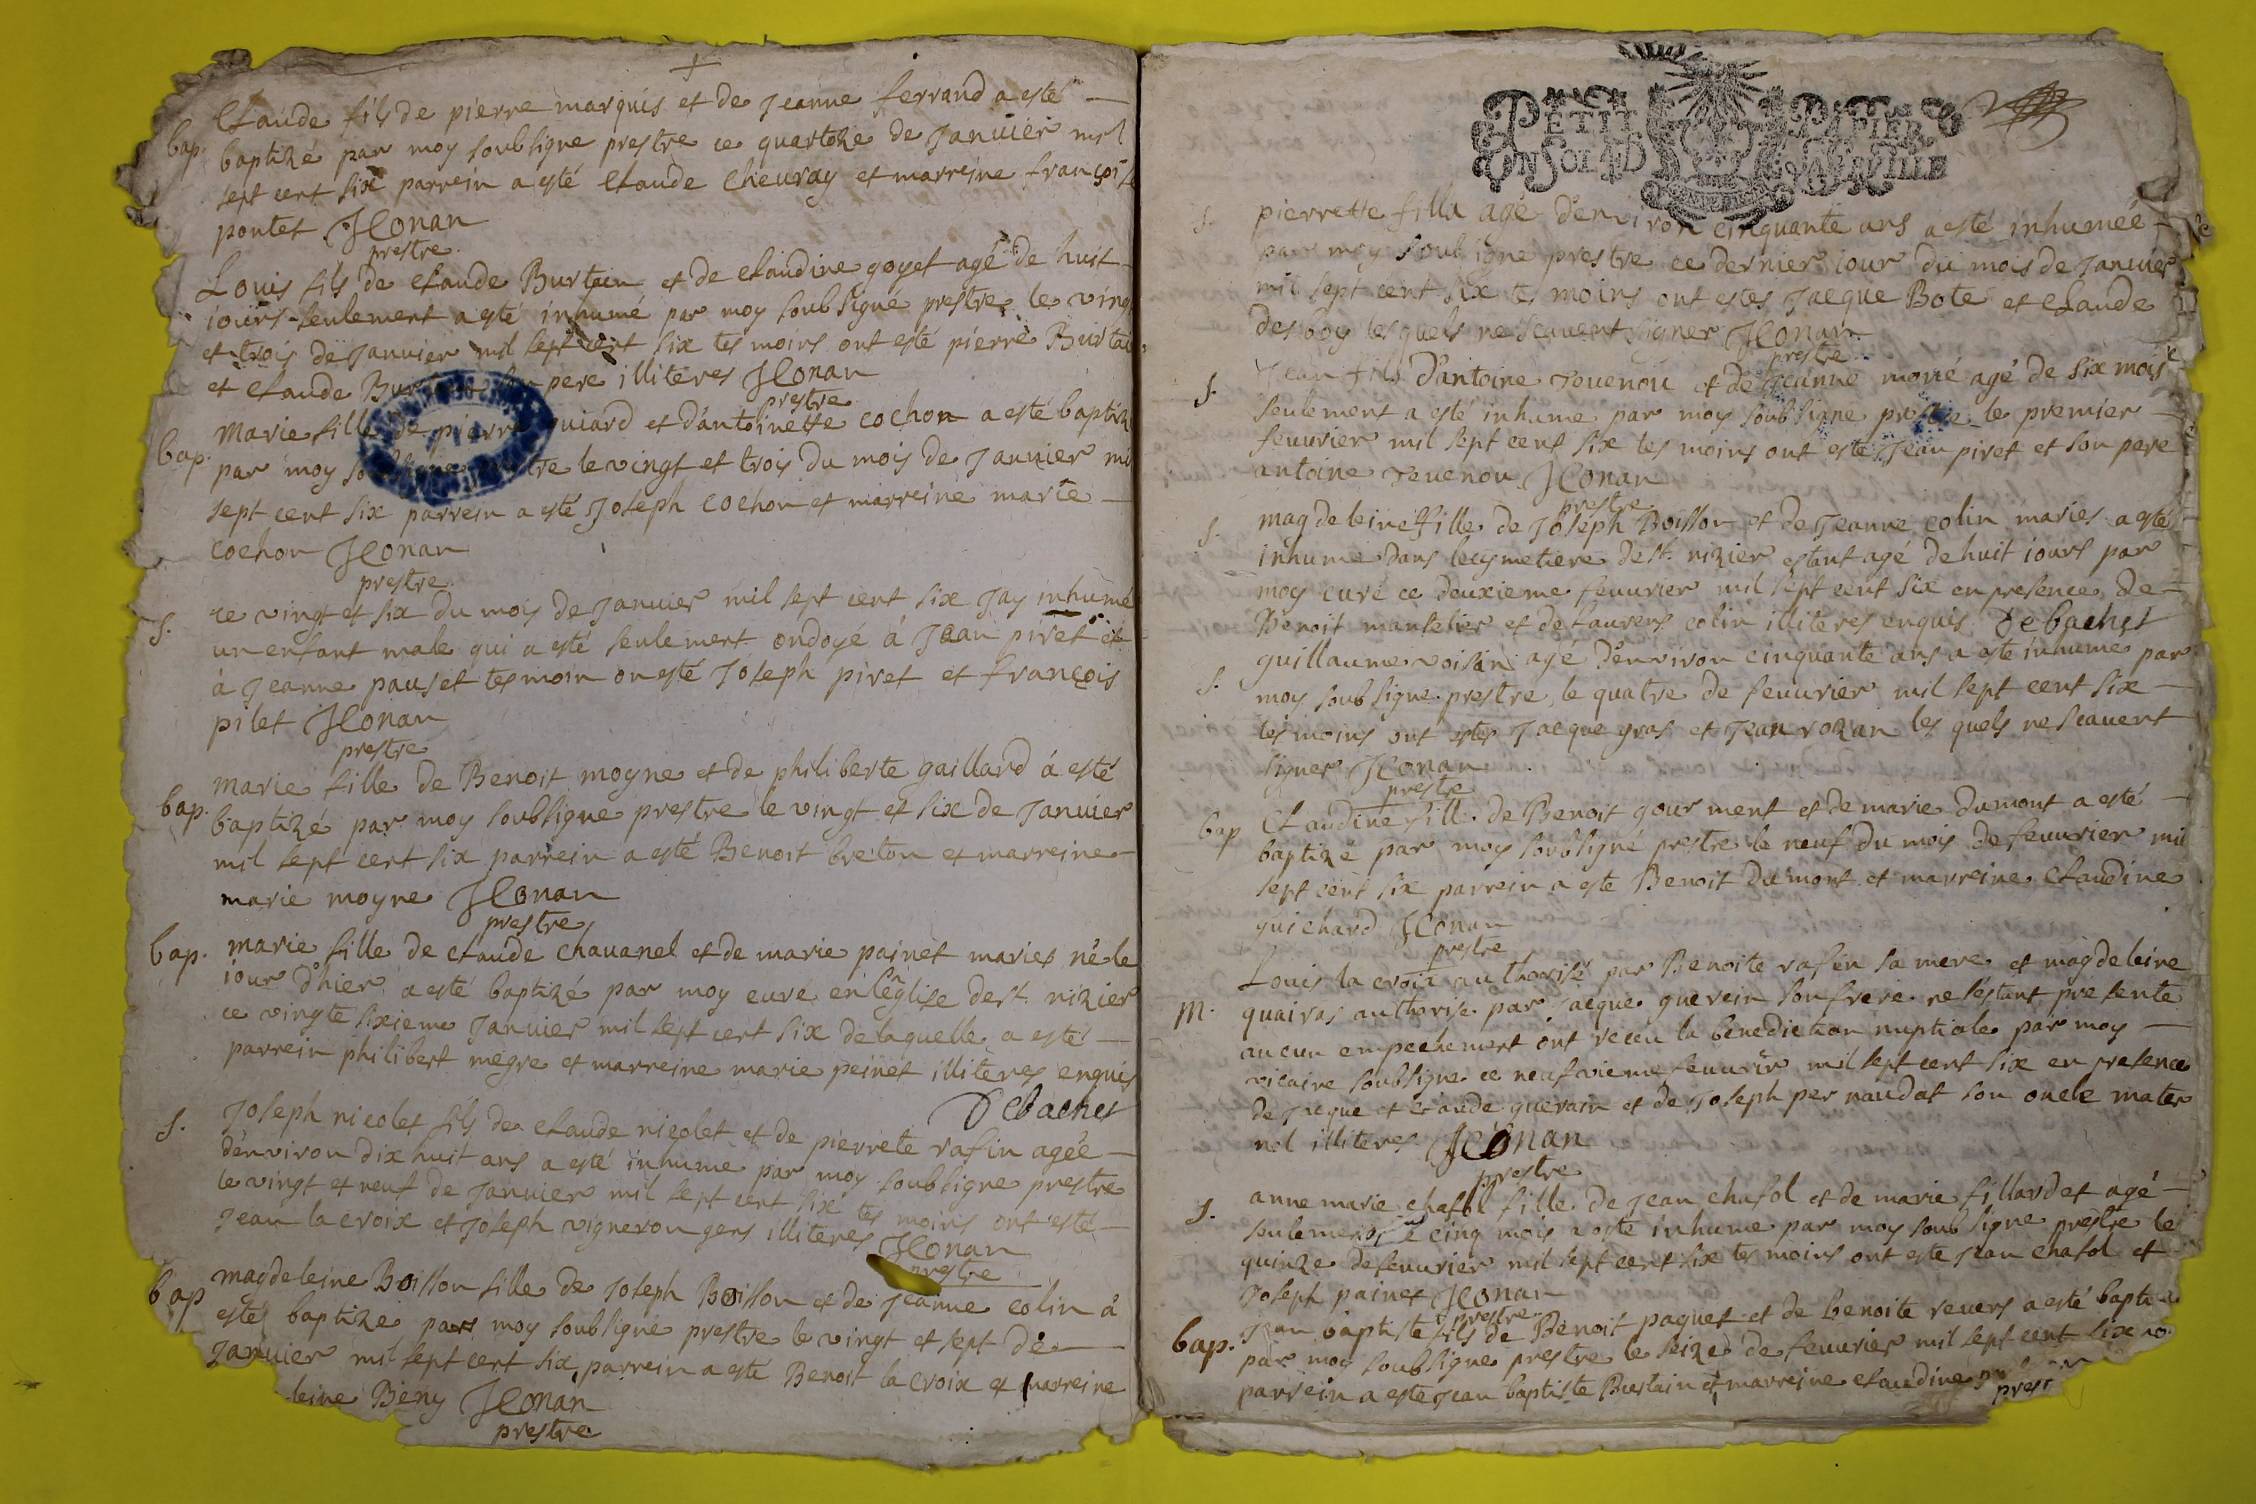 Claude fils de pierre marquis et de Jeanne ferrand a esté
bap. baptizé par moy soubsigne prestre ce quartoze de Janvier mil
sept cent six parrein a esté Claude Cheuray et marreine françoise
pontet JConan
prestre
Louis fils de Claude Burtain et de Claudine goyet agé de huit
iours seulement a esté inhumé par moy soubsigné prestre le vingt
et trois de Janvier mil sept cent six tes moins ont esté pierre Burtain
et Claude pere illiteres JConan
prestre
Marie fille de pierre guiard et d'antoinette cochon a esté baptizé
bap. par moy le vingt et trois du mois de Janvier mil
sept cent six parrein a esté Joseph cochon et marreine marie
cochon JConan
prestre
S. ce vingt et six du mois de Janvier mil sept cent six Jay inhumé
un enfant male qui a esté seulement ondoyé à Jean piret et
à Jeanne pauset tesmoin on esté Joseph piret et françois
pilet JConan
prestre
marie fille de Benoit moyne et de philiberte gaillard á esté
bap. baptizé par moy soubsigne prestre le vingt et six de Janvier
mil sept cent six parrein a esté Benoit breton et marreine
marie moyne JConan
prestre
bap. marie fille de Claude chavanel et de marie painet maries né le
iour d'hier a esté baptizé par moy curé en l'église de st. nizier
ce vingte sixieme Janvier mil sept cent six de laquelle a esté
parrein philibert megre et marreine marie peinet illitères enquis
Debachet
S. Joseph nicolet fils de Claude nicolet et de pierrete rafin agée
d'environ dix huit ans a esté inhume par moy soubsigne prestre
le vingt et neuf de Janvier mil sept cent six tes moins ont esté
Jean la croix et Joseph vigneron gers illiteres JConan
prestre
bap magdeleine Boisson fille de Joseph Boisson et de Jeanne colin à
esté baptizé par moy soubsigné prestre le vingt et sept de
Janvier mil sept cent six parrein a esté Benoit la croix et marreine
leine Beny JConan
prestre
PETIT PAPIER
UN SOL LA D
S. pierrette filla agé d'environ cinquante ans a esté inhumée
par moy soubsigne prestre ce dernier iour du mois de Janvier
mil sept cent six tes moins ont estes Jacque Bote et Claude
desboy lesquels ne scavent signer JConan
prestre
S. Jean fils d'antoine Jouenou et de Jeanne morié agé de six mois
seulement a esté inhume par moy soubsigne prestre le premier
feuvrier mil sept cent six tes moins ont esté Jean piret et son pere
antoine Jeuenou JConan
prestre
S. magdeleine fille de Joseph Boisson et de Jeanne colin maries a esté
inhume dans le cymetiere de st. nizier estant agé de huit iours par
moy curé ce deuxieme feuvrier mil sept cent six en presence de
Benoit mantelier et de Laurens colin illiteres enquis Debachet
S. guillaume voisin agé d'environ cinquante ans a esté inhume par
moy soubsigne prestre le quatre de feuvrier mil sept cent six
tes moins ont estes Jacque gras et Jean rozan les quels ne scavent
signer JConan
prestre
bap Claudine fille de Benoit gourment et de marie dumont a esté
baptizé par moy soubsigné prestre le neuf du mois de feuvrier mil
sept cent six parrein a esté Benoit dumont et marreine Claudine
guichard JConan
prestre
Louis la croix authorisé par Benoite rafin sa mere et magdeleine
M. quairas authorise par Jacque querein son frere ne sestant presenté
aucun empechement ont receu la benediction nuptiale par moy
vicaire soubsigne ce neufvieme feuvrir mil sept cent six en presence
de Jacque et Claude querain et de Joseph pernaudat son oncle mater
nel illiteres JConan
prestre
S. anne marie chafol fille de Jean chafol et de marie fillardet agé
seulement de cinq mois a esté inhume par moy soubsigne prestre le
quinze de feuvrier mil sept cent six tes moins ont esté Jean chafol et
Joseph painet JConan
prestre
bap. Jean baptiste fils de Benoit paquet et de benoite revers a esté bapti
par moy soubsigne prestre le seize de feuvrier mil sept cent six
parrein a esté Jean baptiste Burtain et marreine Claudine
prest